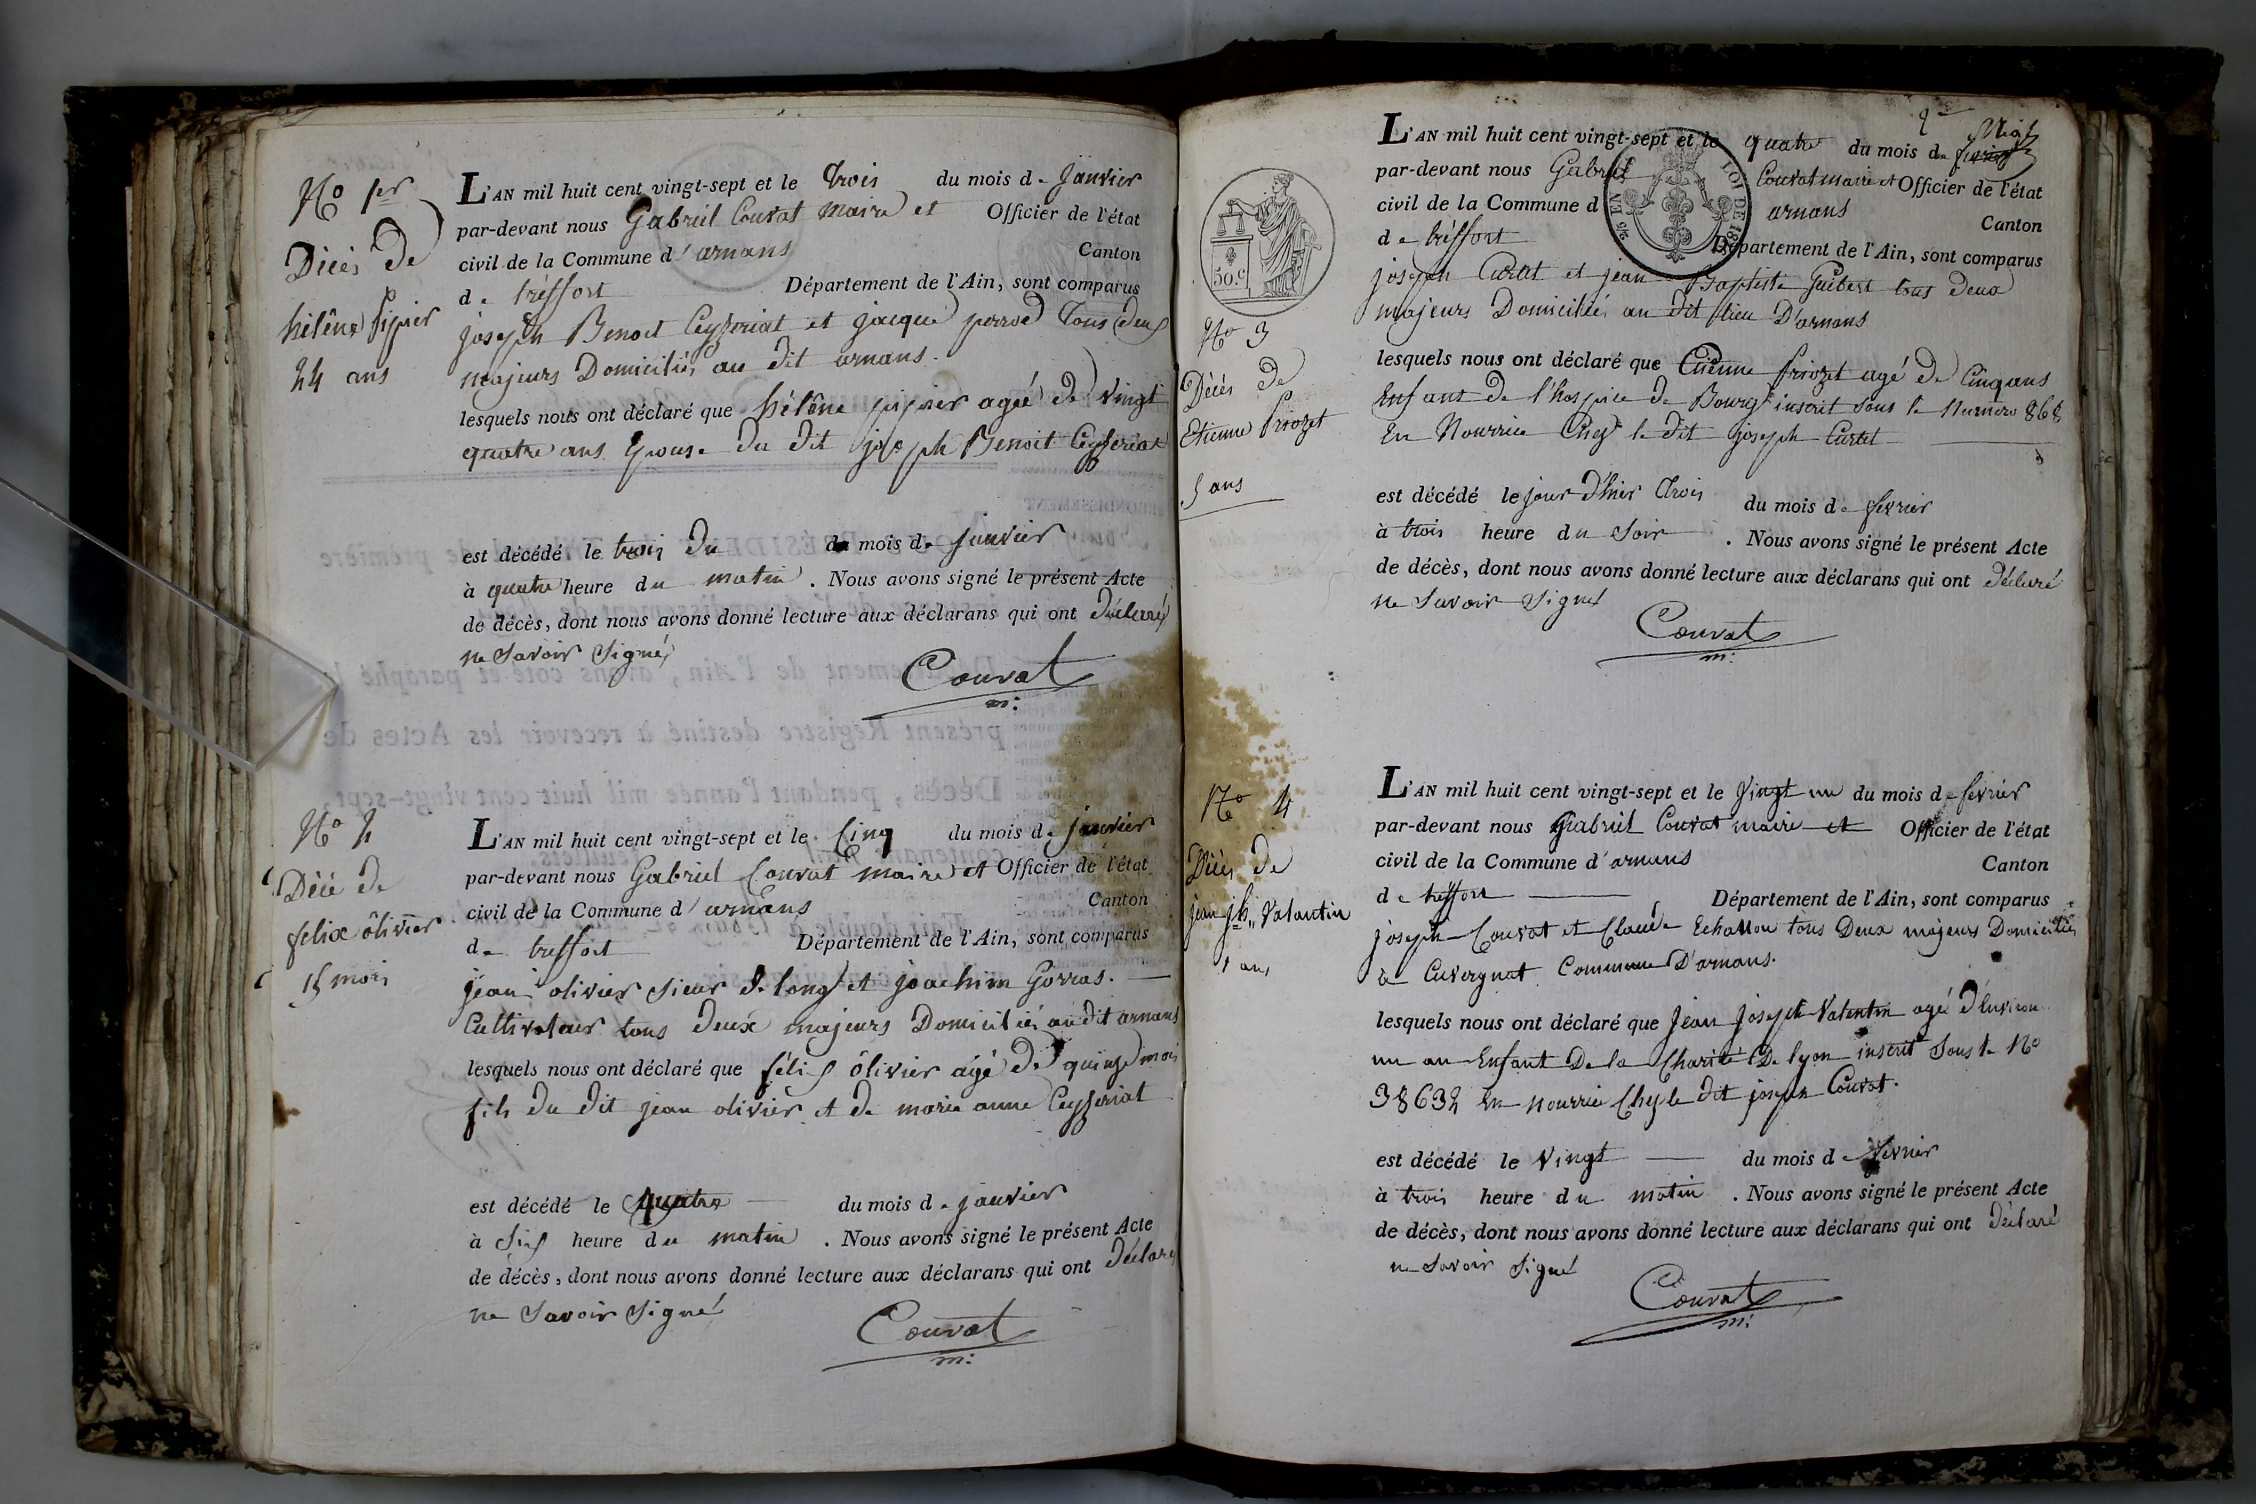 No 1er
Décès De
hélêne pipier
24 ans
L'AN mil huit cent vingt-sept et le Trois du mois de Janvier
par-devant nous Gabriel Couvat Maire et Officier de l'état
civil de la Commune d'arnans Canton
de tréffort Département de l'Ain, sont comparus
joseph Benoit Ceyseriat et jacque perrod Tous deux
majeurs Domiciliés au dit arnans.
lesquels nous ont déclaré que hélêne pipier ageé de Vingt
quatre ans Epouse du dit joseph Benoit Ceyseriat
est décédé le trois du du mois de Janvier
à quatre heure du matin. Nous avons signé le présent Acte
de décès, dont nous avons donné lecture aux déclarans qui ont déclaré
ne Savoir Signés
Couvat
m:
No 2
Décè de
felix ôlivier
15 mois
L'AN mil huit cent vingt-sept et le Cinq du mois de janvier
par-devant nous Gabriel Couvat maire et Officier de l'état
civil de la Commune d'arnans Canton
de treffort Département de l'Ain, sont comparus
jean olivier Sieur de long et joachim
Cultivateur tous deux majeurs Domiciliés audit arnans
lesquels nous ont déclaré que félix ôlivier agé de quinze mois
fils du dit jean olivier et de marie anne Ceyseriat
est décédé le quatre du mois de janvier
à Six heure du matin. Nous avons signé le présent Acte
de décès, dont nous avons donné lecture aux déclarans qui ont déclaré
ne Savoir Signé
Couvat
m:
2
50.c
EN
LOI DE
No 3
Décès De
Etienne Priozet
5 ans
L'AN mil huit cent vingt-sept et le quatre du mois de fevrier
par-devant nous Gabriel Couvat maire et Officier de l'état
civil de la Commune d arnans Canton
de tréffort Département de l'Ain, sont comparus
joseph Curtet et jean Baptiste Guibert tous deux
majeurs Domiciliés au dit lieu D'arnans
lesquels nous ont déclaré que Etienne Priozet agé de Cinq ans
Enfant de l'hospice de Bourg inscrit sous le Numero 868
En Nourrice Chez le dit joseph Curtet
est décédé le jour D'hier Trois du mois de fevrier
à trois heure du Soir. Nous avons signé le présent Acte
de décès, dont nous avons donné lecture aux déclarans qui ont déclaré
ne Savoir Signé
Couvat
m:
No 4
Décès de
jean jh Valantin
1 ans
L'AN mil huit cent vingt-sept et le Vingt un du mois de fevrier
par-devant nous Gabriel Couvat maire et Officier de l'état
civil de la Commune d'arnans Canton
de treffort Département de l'Ain, sont comparus
joseph Couvat et Claude Echallon tous Deux majeurs Domiciliés
à Cuvergnat Commune D'arnans.
lesquels nous ont déclaré que Jean Joseph Valentin agé D'Environ
un an Enfant De la Charité De lyon inscrit Sous le No
38632 En nourrice Chez le dit joseph Couvat.
est décédé le Vingt du mois d fevrier
à trois heure du matin. Nous avons signé le présent Acte
de décès, dont nous avons donné lecture aux déclarans qui ont déclaré
ne Savoir Signé
Couvat
m: